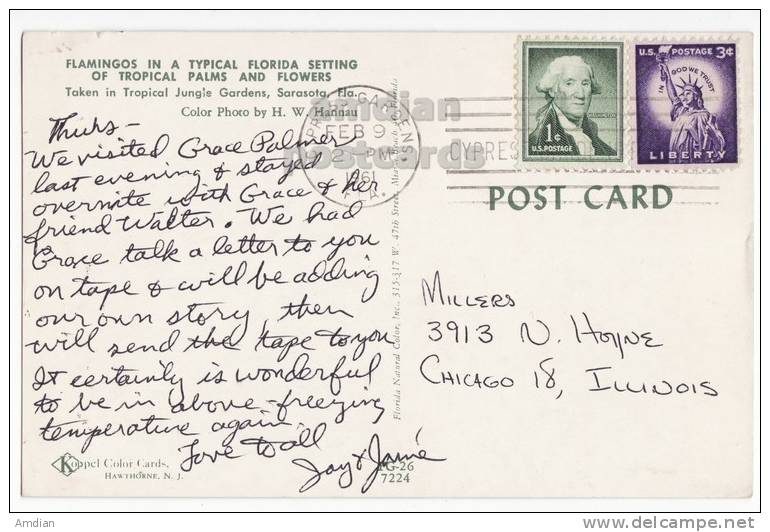 FLAMINGOS IN A TYPICAL FLORIDA SETTING
OF TROPICAL PALMS AND FLOWERS
Taken in Tropical Jungle Gardens, Sarasota, Fla.
Color Photo by H. W. Hannau
Thurs –
We visited Grace Palmer
last evening & stayed
overnite with Grace & her
friend Walter. We had
Grace talk a letter to you
on tape & will be adding
our own story, then
will send the tape to you
It certainly is wonderful
to be in above-freezing
temperature again.
Love to all
Jay & Jamie
Koppel Color Cards.
HAWTHORNE, N. J.
PG-26
7224
Florida Natural Color, Inc., 315-317 W. 47th Street, Miami Beach 40, Florida
CYPRESS GARDENS
FEB 9
PM
1961
FLA.
CYPRESS
1¢
WASHINGTON
U.S. POSTAGE
U.S. POSTAGE 3¢
IN GOD WE TRUST
LIBERTY
POST CARD
Millers
3913 N. Hoyne
Chicago 18, Illinois
amdian
postcards
Amdian
www.delcampe.net